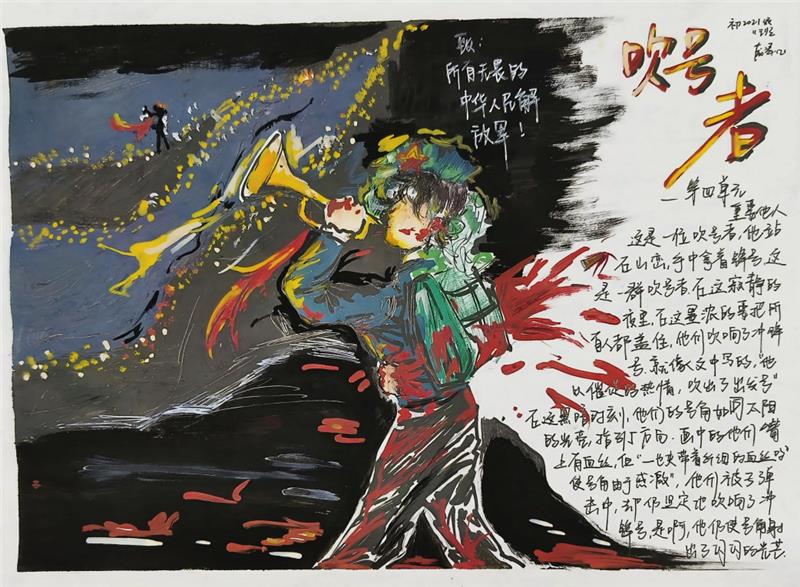 致:
所有无畏的
中华人民解
放军!
初2021级
11班
吹号
者
—第四单元
重要他人
这是一位吹号者,他站
在山峦,手中拿着号,这
是一群吹号者,在这寂静的
夜里,在这墨泼的要把所
有人都盖住,他们吹响了冲锋
号,就像文中写的,"他
以催促的热情,吹出了出发号"
在这黑暗时刻,他们的号角如同太阳
的出,指引了方向.画中的他们嘴
上有血丝,但"一夹带着纤细的血丝的
使号角由于感激",他们被子弹
击中,却仍坚定地吹响了冲
锋号,是啊,他仍使号角射
出了闪闪的光芒.